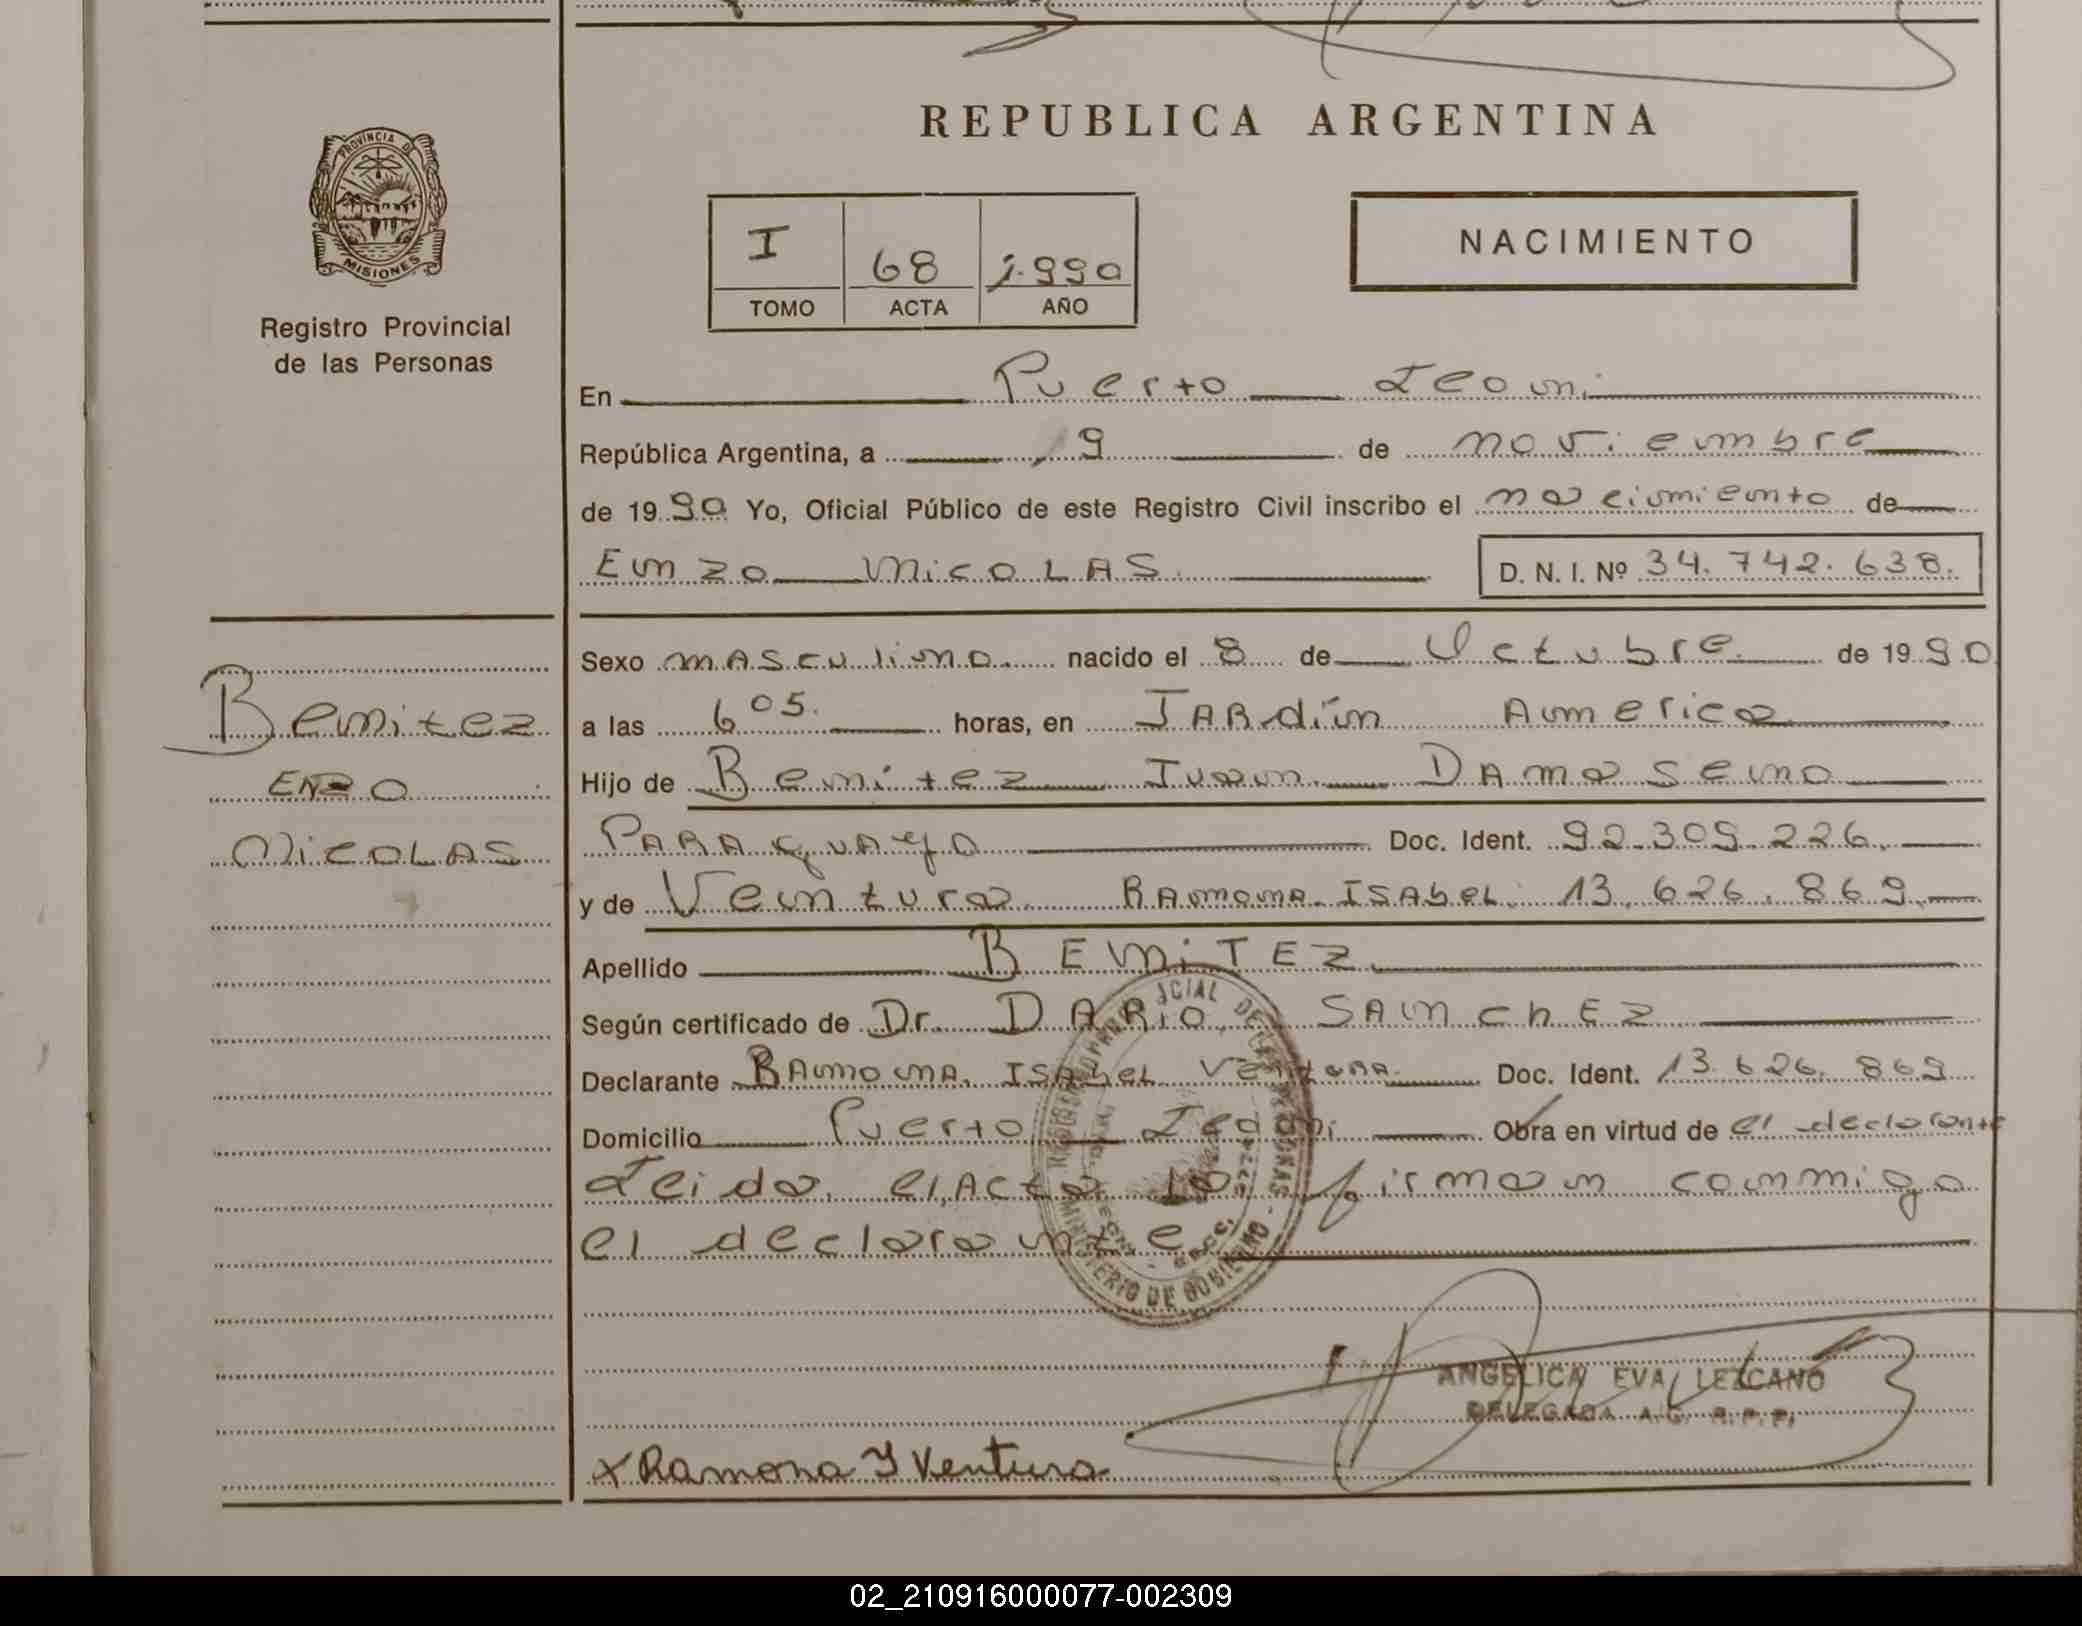 REPUBLICA ARGENTINA
PROVINCIA DE
MISIONES
Registro Provincial
de las Personas
I 68 1.990
TOMO ACTA AÑO
NACIMIENTO
En Puerto Leoni
República Argentina, a 9 de noviembre
de 1990 Yo, Oficial Público de este Registro Civil inscribo el nacimiento de
Enzo NicoLAS D. N. I. Nº 34.742.638.
Benitez
ENZO
NicoLAS
Sexo mAsculino nacido el 8 de Octubre de 1990
a las 6 05. horas, en JARdín America
Hijo de Benitez Juan DAmaseno
PARAguAyo Doc. Ident. 92.309.226.
y de Ventura RAmonA ISAbeL. 13.626.869.
Apellido BENiTEZ
Según certificado de Dr. DARio SANchEZ
Declarante RAmonA ISAbeL VentuRA Doc. Ident. 13.626.869
Domicilio Puerto Leoni Obra en virtud de el declarante
Leida el Acta la firman conmigo
el declarante
MINISTERIO DE GOBIERNO
ANGELICA EVA LEZCANO
DELEGADA A.C. R.P.P.
x Ramona I Ventura
02_210916000077-002309